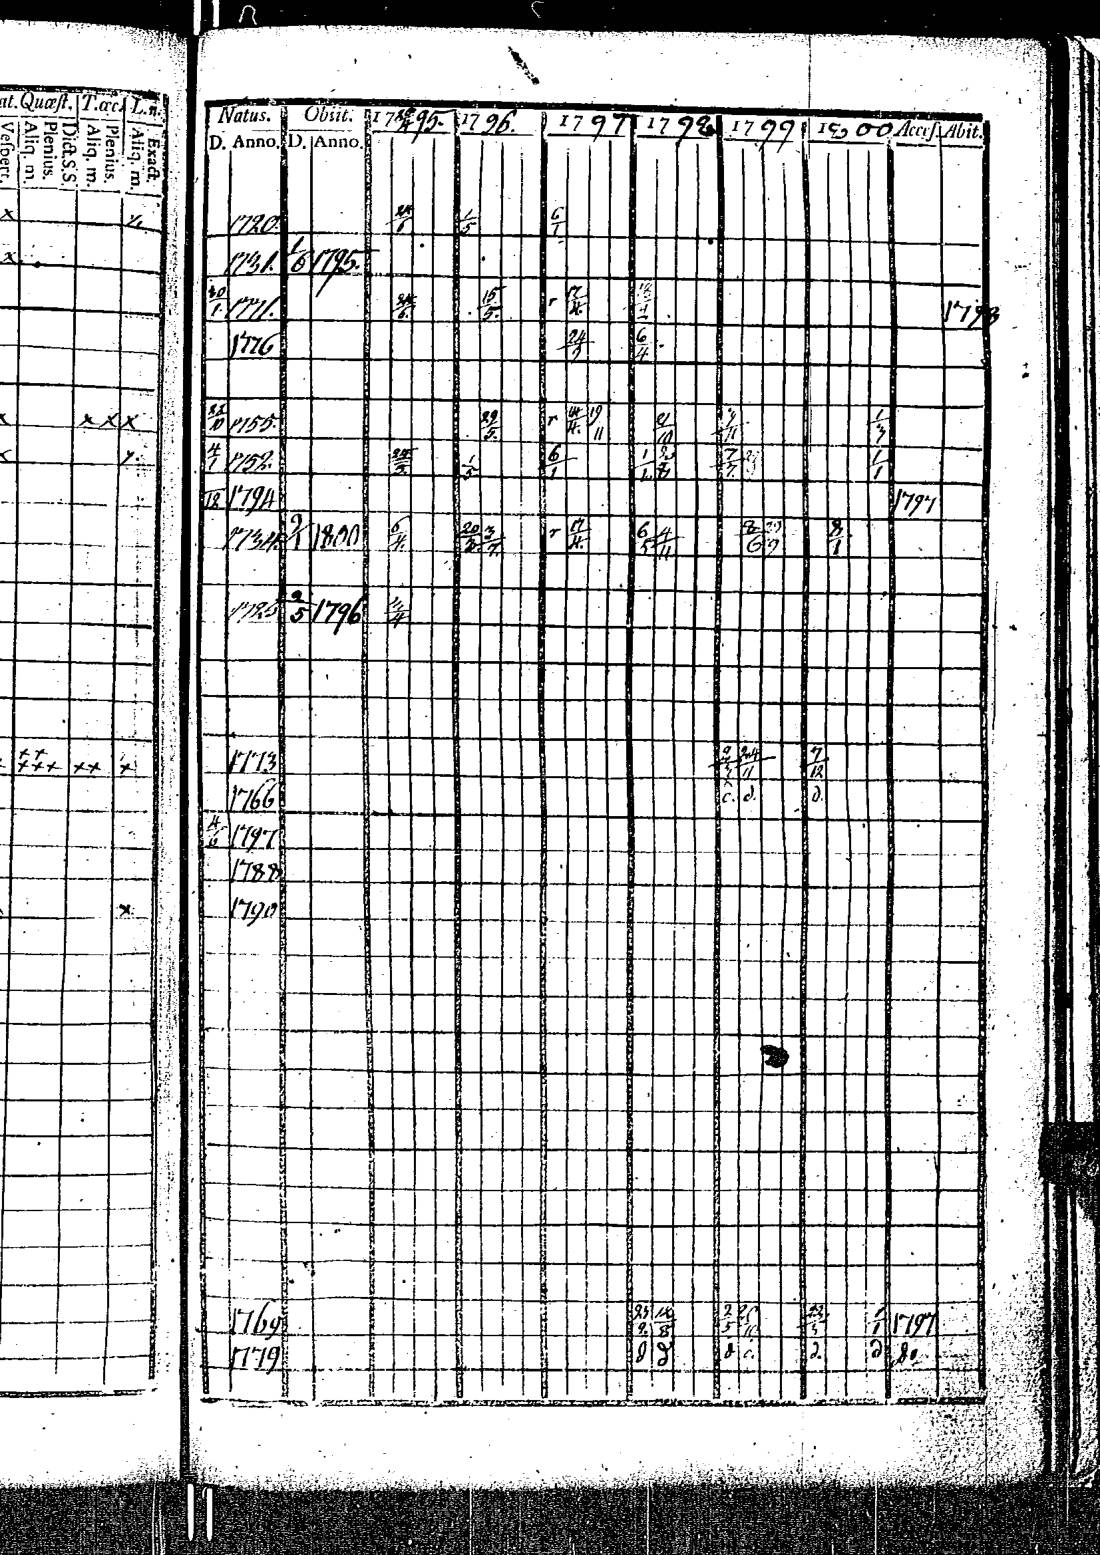 at. Quæst. T.œc. L.n.
Vesperr. Aliq. m. Plenius. Dict. S.S. Aliq. m. Plenius. Aliq. m. Exact.
Natus. Obiit. 1795. 1796. 1797 1798 1799 1800 Access. Abit.
D. Anno. D. Anno.
x 1720. 24/6 1/5 6/1
x 1731. 1/6 1795.
30/1 1771. 24/6. 15/5. r 17/4. 1798
1776 24/9 6/4
x x x x 22/10 1755. 29/5. r 14/4. 19 11 21/10 1/3
x 4/7 1752. 1/5 6/1 7/7. 1/1
12 1794 1797
1734. 9/1 1800 6/4. 20/2. 3/7. r 17/4. 6/5 4/11 8/6 29/9 8/1
1725 2/5 1796
x x x x x x x x 1773 24/11 7/12
1766 c. d. d.
4/6 1797
1788
x 1790
1769 14/8 1/1 1797
1779 d d d c. d. d do